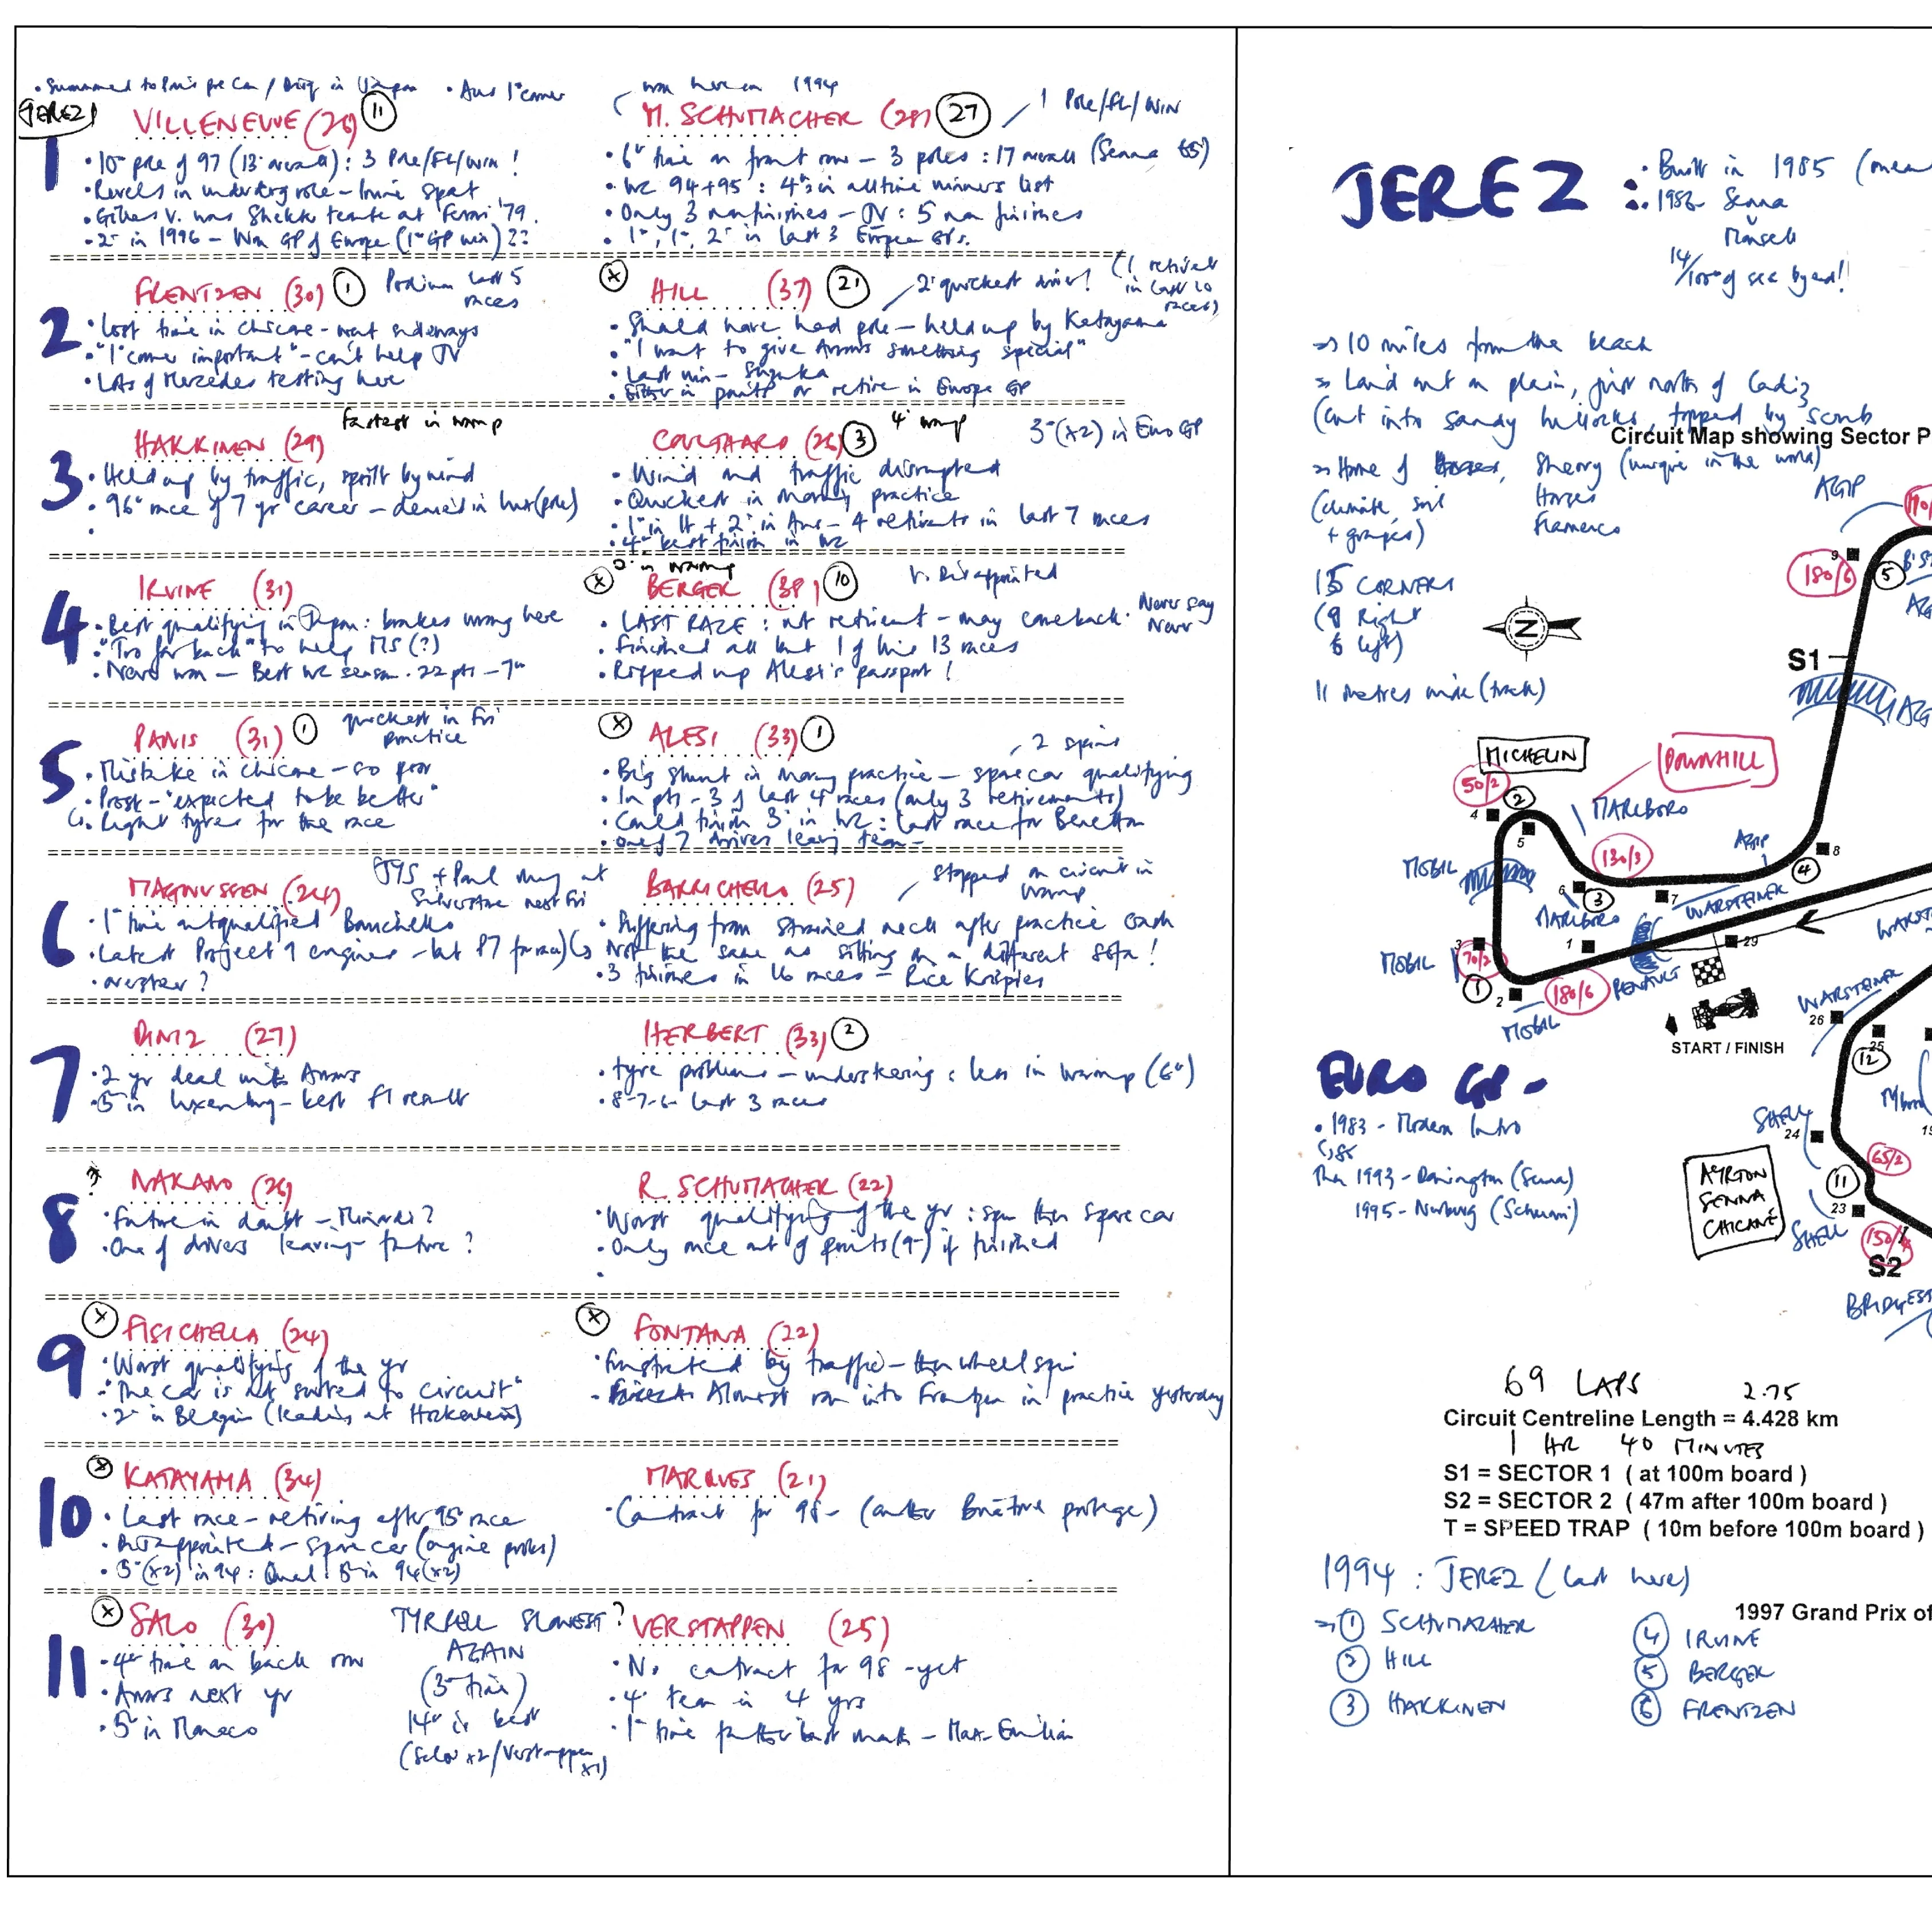 JEREZ
VILLENEUVE (26) 11
• 10th pole of 97 (13th overall) : 3 Pole/FL/Win !
• Revels in underdog role – Irvine spat
• Gilles V. was team at Ferrari '79.
• 2nd in 1996 – Won GP of Europe (1st GP win) ??
won here in 1994
M. SCHUMACHER (28) 27
1 Pole/FL/WIN
• 6th time on front row – 3 poles : 17 overall (Senna 65)
• WC 94+95 : 4th in all time winners list
• Only 3 non finishes – JV : 5 non finishes
• 1st, 1st, 2nd in last 3 European GPs.
2
FRENTZEN (30) 1
Podium last 5 races
• Lost time in chicane – went sideways
• "1st corner important" – can't help JV
• Lots of Mercedes testing here
X HILL (37) 21
2nd quickest driver!
(1 retiral in last 10 races)
• Should have had pole – held up by Katayama
• "I want to give Arrows something special"
• Last win – Suzuka
• Either in points or retire in Europe GP
3
HAKKINEN (29)
fastest in warmup
• Held up by traffic, spoilt by wind
• 96th race of 7 yr career – denied in Lux (pole)
COULTHARD (26) 3
4th warmup
3rd (x2) in Euro GP
• Wind and traffic disrupted
• Quickest in morning practice
• 1st in It + 2nd in Aus – 4 retirements in last 7 races
• 4th best finish in WC
4
IRVINE (31)
• Best qualifying in Japan : brakes wrong here
• "Too far back" to help MS (?)
• Never won – Best WC season. 22 pts – 7th
2nd in warmup
X BERGER (38) 10
V. Disappointed
• LAST RACE : not retirement – may comeback. Never say Never
• Finished all but 1 of his 13 races
• Ripped up Alesi's passport !
5
PANIS (31) 1
quickest in Fri practice
• Mistake in chicane – so poor
• Prost – "expected to be better"
• Right tyres for the race
X ALESI (33) 1
2 spins
• Big shunt in morning practice – spare car qualifying
• In pts – 3 of last 4 races (only 3 retirements)
• Could finish 3rd in WC : Last race for Benetton
• One of 7 drivers leaving team –
6
MAGNUSSEN (24)
JYS + Paul at Silverstone next Fri
• 1st time outqualified Barrichello
• Latest Project 9 engines – but P7 for race
• overster ?
BARRICHELLO (25)
Stopped on circuit in warmup
• Suffering from strained neck after practice crash
Not the same as sitting on a different sofa !
• 3 finishes in 16 races – Rice Krispies
7
DINIZ (27)
• 2 yr deal with Arrows
• 5th in Luxemburg – best F1 result
HERBERT (33) 2
• tyre problems – understeering : less in warmup (6th)
• 8-7-6- last 3 races
8
NAKANO (26)
• Future in doubt – Minardi ?
• One of drivers leaving – future ?
R. SCHUMACHER (22)
• Worst qualifying of the yr : spin then spare car
• Only once out of points (9th) if finished
9
X FISICHELLA (24)
• Worst qualifying of the yr
• "The car is not suited to circuit"
• 2nd in Belgium (leading at Hockenheim)
X FONTANA (22)
• Frustrated by traffic – then wheel spin
– Almost ran into Frentzen in practice yesterday
10
X KATAYAMA (34)
• Last race – retiring after 95th race
• Disappointed – spare car (engine probs)
• 5th (x2) in 94 : Qual 5th in 94 (x2)
MARQUES (21)
• Contract for 98 – (another Briatore protege)
11
X SALO (30)
• 4th time on back row
• Arrows next yr
• 5th in Monaco
TYRRELL SLOWEST ?
AGAIN
(3rd time)
14th is best
(Salo x2/Verstappen x1)
VERSTAPPEN (25)
• No contract for 98 – yet
• 4th team in 4 yrs
• 1st time father last month – Max-Emilian
JEREZ :
• Built in 1985
• 1986 – Senna
v
Mansell
14/100th of sec
→ 10 miles from the beach
→ Laid out on plain, just north of Cadiz
(Cut into sandy hillocks, topped by scrub
Circuit Map showing Sector P
→ Home of Sherry (unique in the world)
Horses
Flamenco
(climate, soil + grapes)
15 CORNERS
(9 Right
6 left)
11 metres wide (track)
N
AGIP
180/6
9
5
S1
MICHELIN
DOWNHILL
50/2
2
4
5
MARLBORO
130/3
AGIP
8
4
MOBIL
6
3
7
MARLBORO
WARSTEINER
1
29
3
70/2
MOBIL
1
2
180/6
RENAULT
MOBIL
START / FINISH
WARSTEINER
26
25
12
EURO GP –
• 1983 – Modern Intro
85
Then 1993 – Donington (Senna)
1995 – Nurburg (Schumi)
SHELL
24
65/2
11
23
AYRTON
SENNA
CHICANE
SHELL
S2
69 LAPS 2.75
Circuit Centreline Length = 4.428 km
1 HR 40 MINUTES
S1 = SECTOR 1 ( at 100m board )
S2 = SECTOR 2 ( 47m after 100m board )
T = SPEED TRAP ( 10m before 100m board )
1994 : JEREZ (Last here)
1997 Grand Prix of
→ 1 SCHUMACHER
2 HILL
3 HAKKINEN
4 IRVINE
5 BERGER
6 FRENTZEN